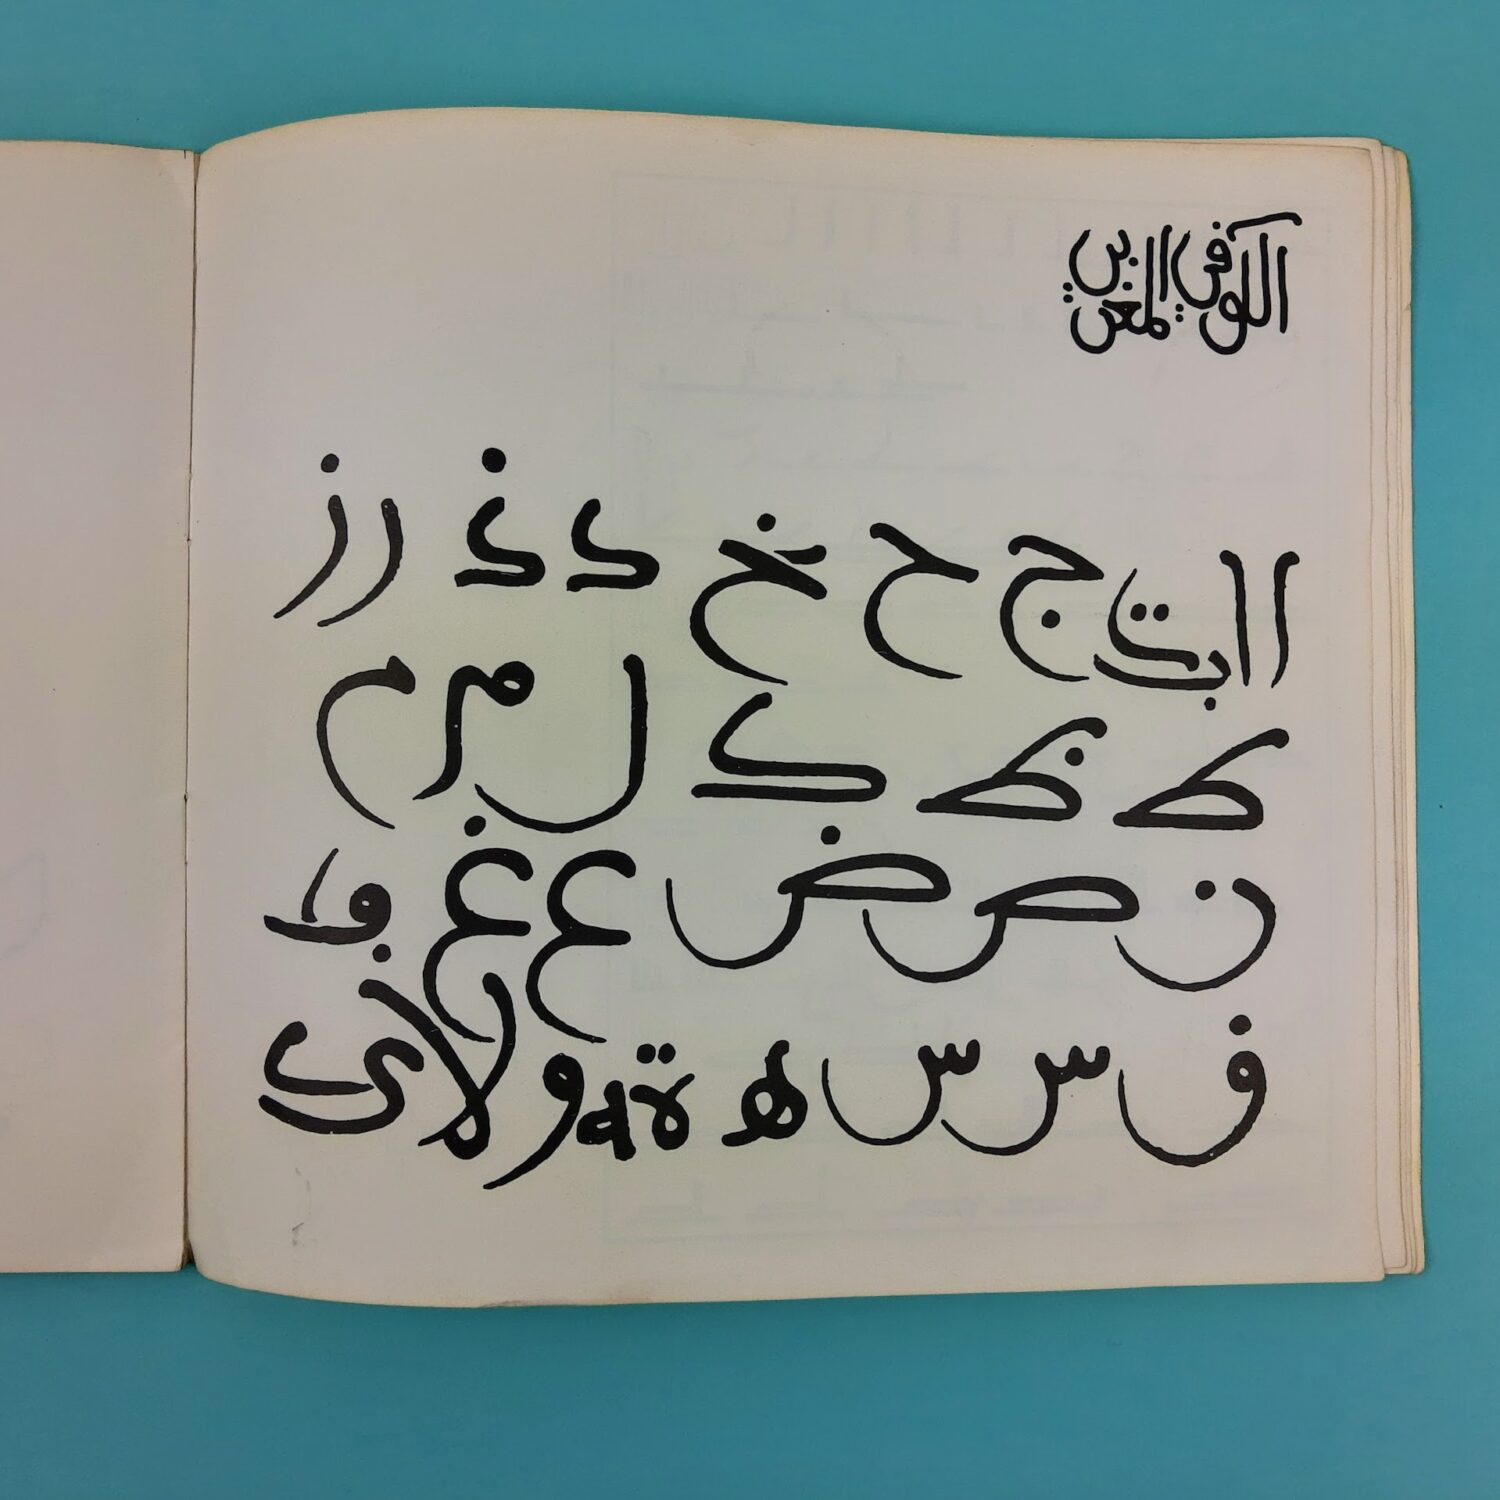 الكوفي المغربي
ا ا ب ت ج ح خ د ذ ر ز
ط ظ ك ل م م
ن ص ض ع غ
ف س س ه ة ه و لا ي